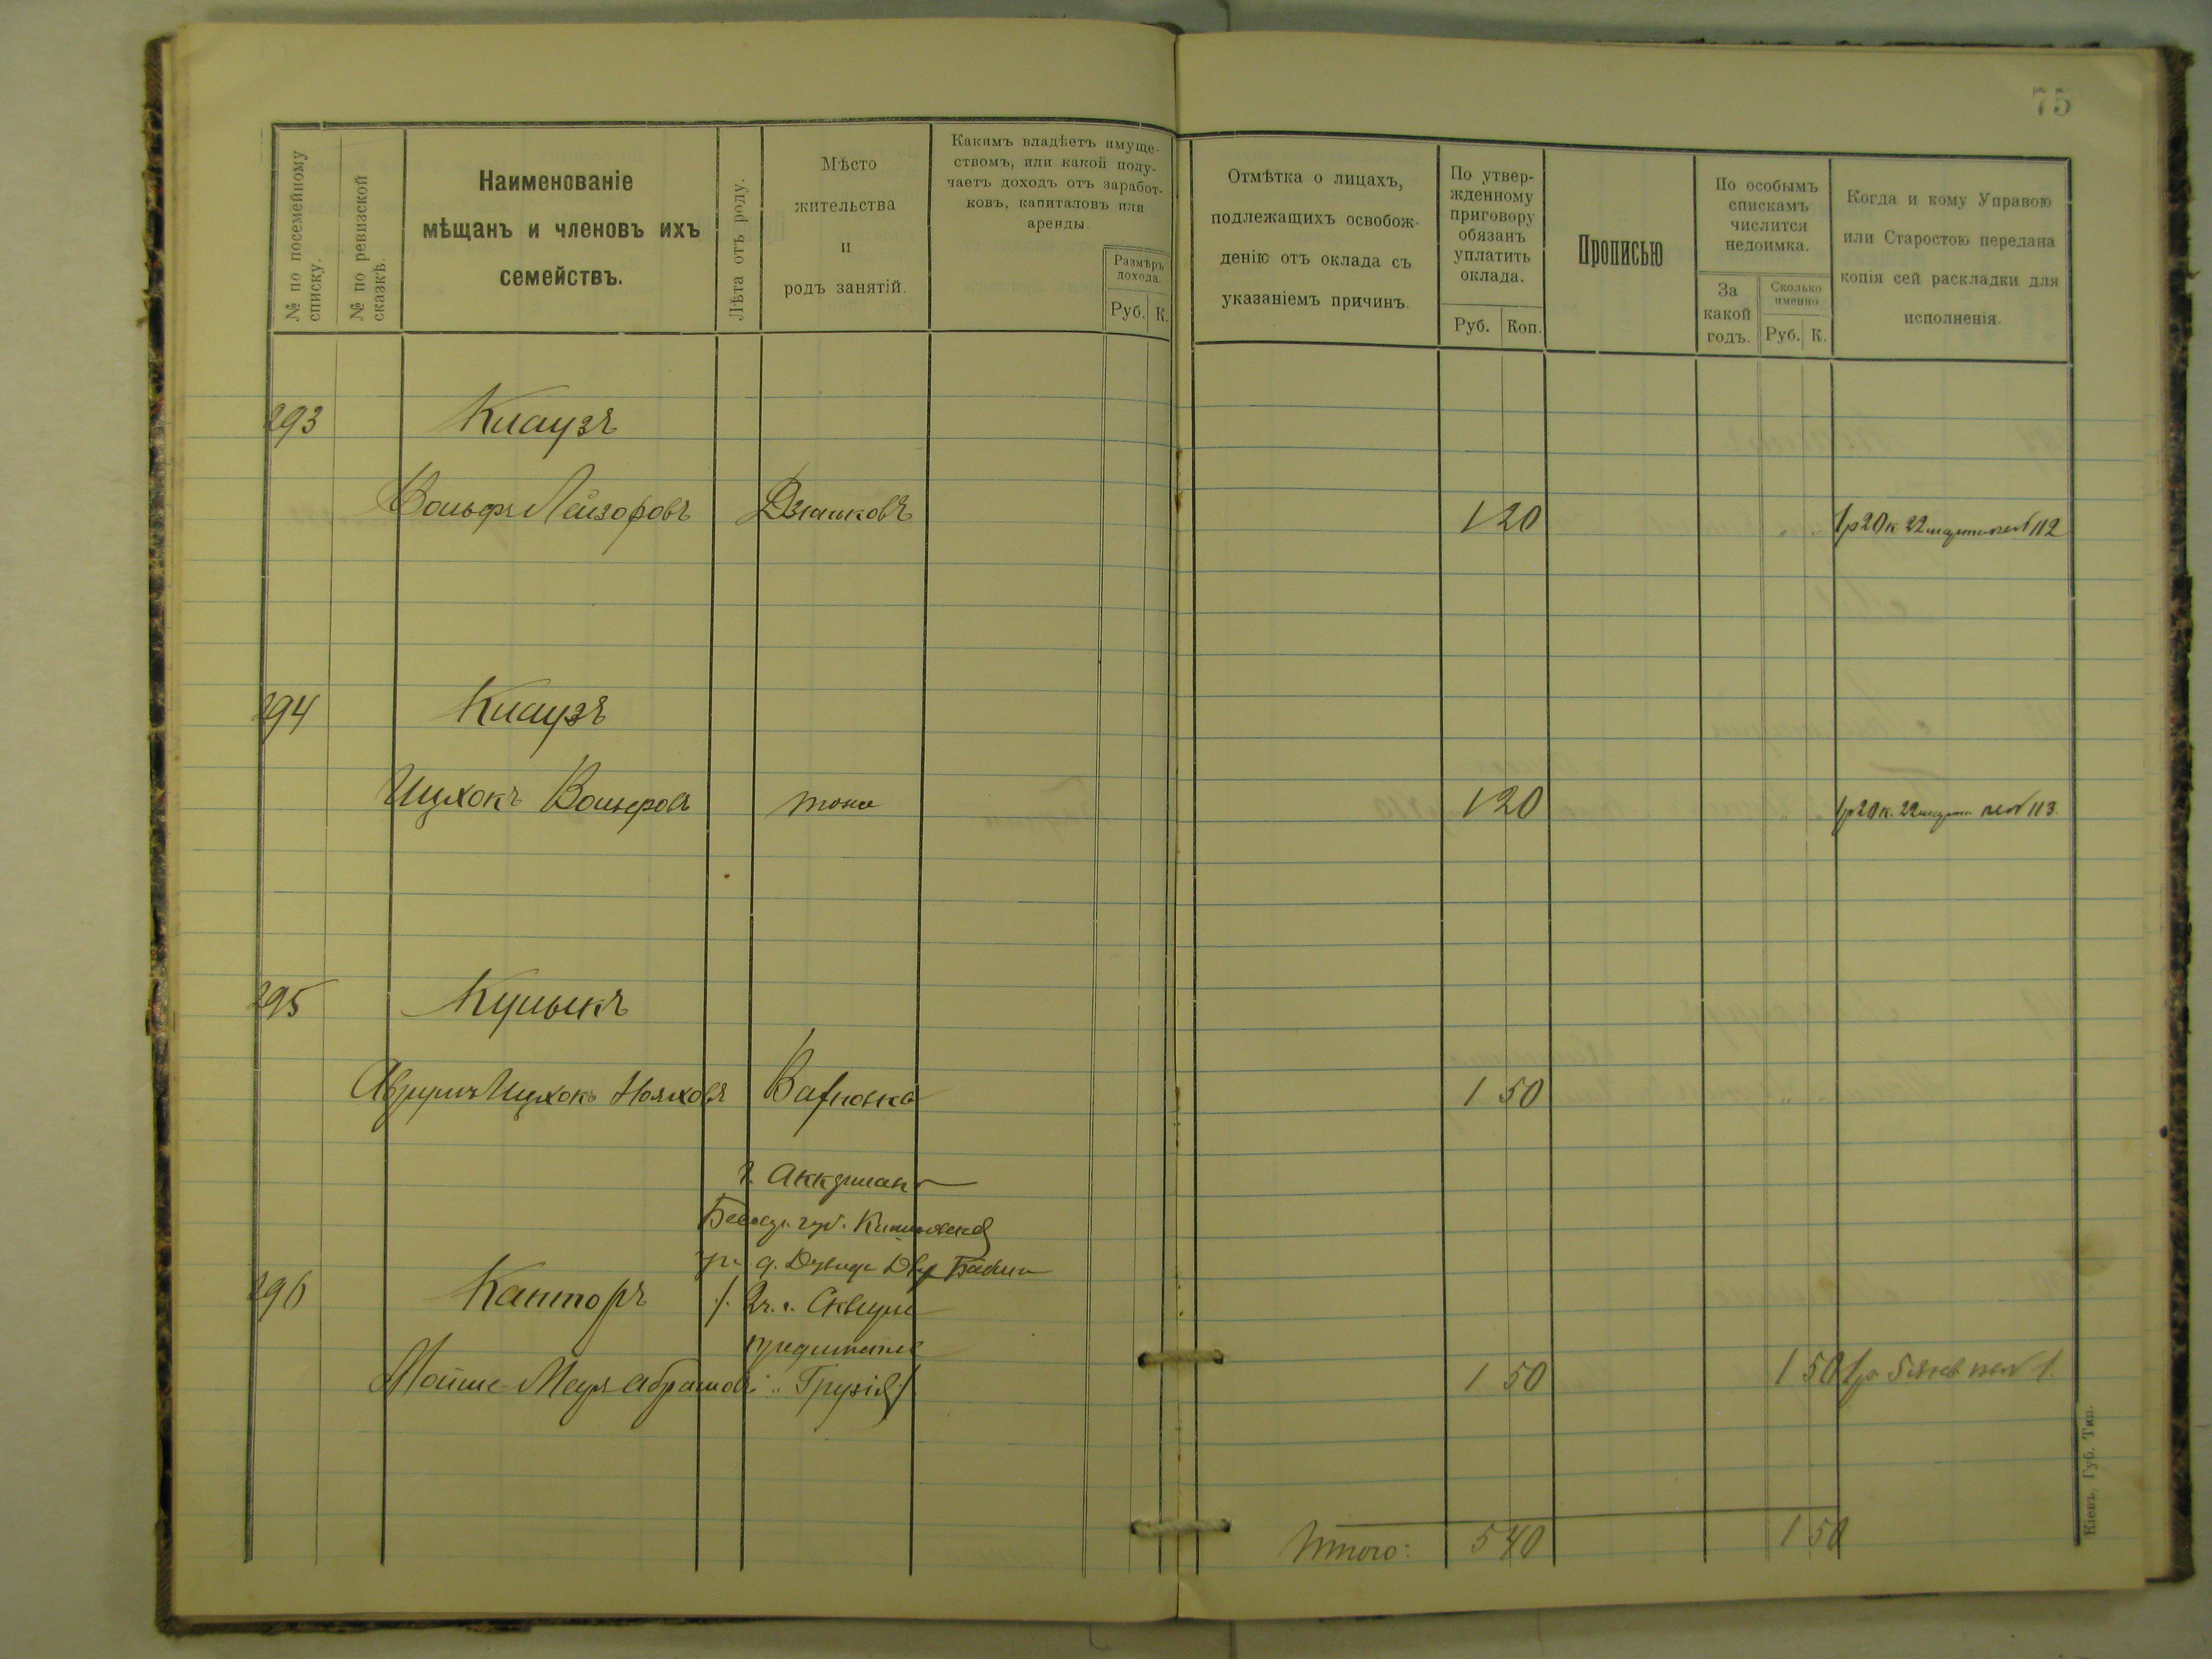 75
№ по посемейному списку.
№ по ревизской сказкѣ.
Наименованіе
мѣщанъ и членовъ ихъ
семействъ.
Лѣта отъ роду.
Мѣсто
жительства
и
родъ занятій.
Какимъ владѣетъ имуще-
ствомъ, или какой полу-
чаетъ доходъ отъ заработ-
ковъ, капиталовъ или
аренды.
Размѣръ
дохода.
Руб. К.
Отмѣтка о лицахъ,
подлежащихъ освобож-
денію отъ оклада съ
указаніемъ причинъ.
По утвер-
жденному
приговору
обязанъ
уплатить
оклада.
Руб. Коп.
Прописью
По особымъ
спискамъ
числится
недоимка.
За
какой
годъ.
Сколько
именно
Руб. К.
Когда и кому Управою
или Старостою передана
копія сей раскладки для
исполненія.
293 Клаузъ
Вольфъ Лейзоровъ 1 20 1р 20к 22 марта 112
294 Клаузъ
Ицхокъ Вольфовъ тоже 1 20 1р 20к. 22 марта 113.
295 Кульикъ
Аврумъ Ицхокъ Нояховъ 1 50
г. Аккерман
губ.
296 Канторъ г. Сквиры
Мойше-Меер Абрамов 1 50 1 50 1р 5 янв 1.
Итого: 5 40 1 50
Кіевъ, Губ. Тип.